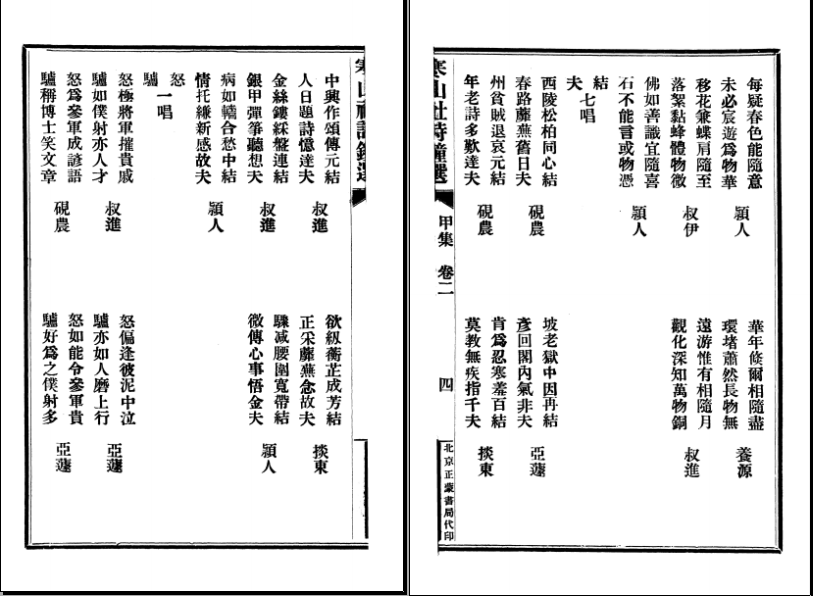 每疑春色能隨意
未必宸遊爲物華 潁人
華年倏爾相隨盡
環堵蕭然長物無 養源
移花兼蝶肩隨至
落絮黏蜂體物微 叔伊
遠游惟有相隨月
觀化深知萬物銅 叔進
佛如善識宜隨喜
石不能言或物憑 潁人
結
夫 七唱
西陵松柏同心結
春路蘼蕪舊日夫 硯農
坡老獄中因再結
彥回閣內氣非夫 亞蘧
州貧賊退哀元結
年老詩多歎達夫 硯農
肯爲忍寒羞百結
莫教無疾指千夫 掞東
寒山社詩鐘選 甲集 卷二 四 北京正蒙書局代印
寒山社詩鐘選
中興作頌傳元結
人日題詩憶達夫 叔進
欲紉蘅芷成芳結
正采蘼蕪念故夫 掞東
金絲鏤綵盤連結
銀甲彈箏聽想夫 叔進
驟減腰圍寬帶結
微傳心事悟金夫 潁人
病如轖合愁中結
情托縑新感故夫 潁人
怒
驢 一唱
怒極將軍摧貴戚
驢如僕射亦人才 叔進
怒偏逢彼泥中泣
驢亦如人磨上行 亞蘧
怒爲參軍成諺語
驢稱博士笑文章 硯農
怒如能令參軍貴
驢好爲之僕射多 亞蘧